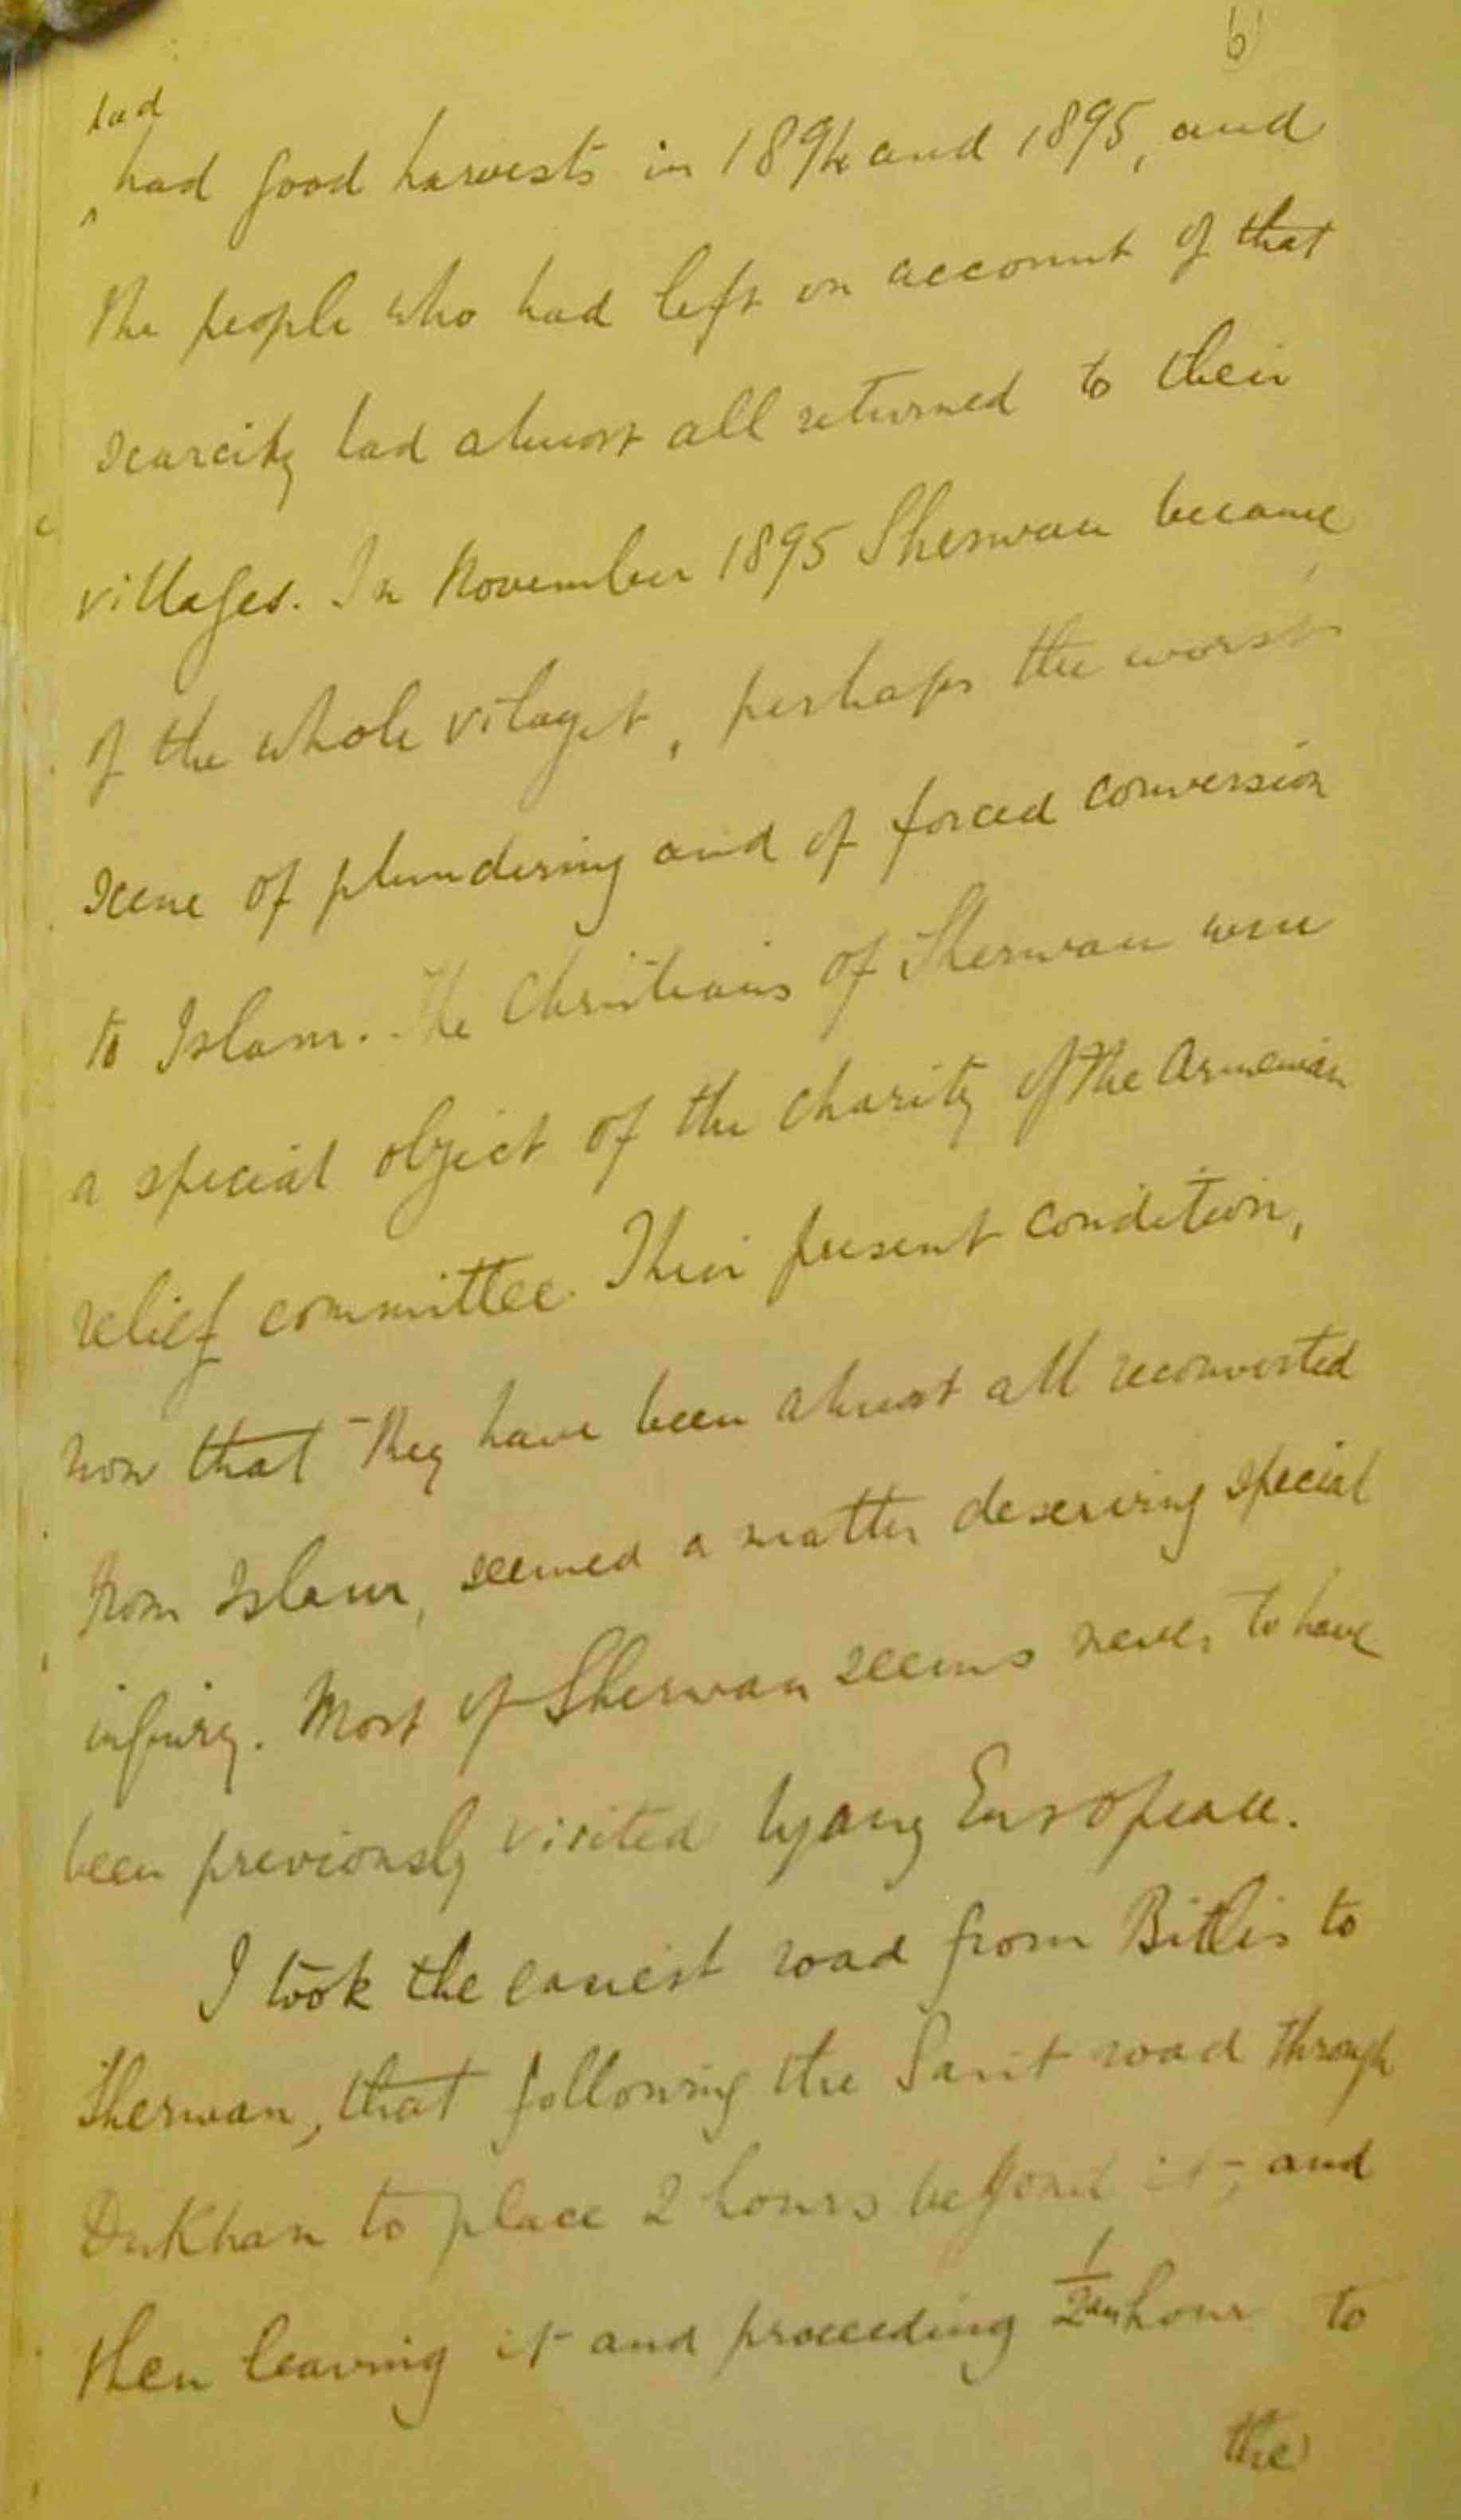 6
had
^had good harvests in 1894 and 1895, and
the people who had left on account of that
scarcity had almost all returned to their
villages. In November 1895 Sherwan became,
of the whole vilayet, perhaps the worst
scene of plundering and of forced conversion
to Islam. The Christians of Sherwan were
a special object of the charity of the Armenian
relief committee. Their present condition,
now that they have been almost all reconverted
from Islam, seemed a matter deserving special
inquiry. Most of Sherwan seems never to have
been previously visited by any European.
I took the easiest road from Bitlis to
Sherwan, that following the Sairt road through
Dukhan to place 2 hours beyond it, and
then leaving it and proceeding 1/2 an hour to
the